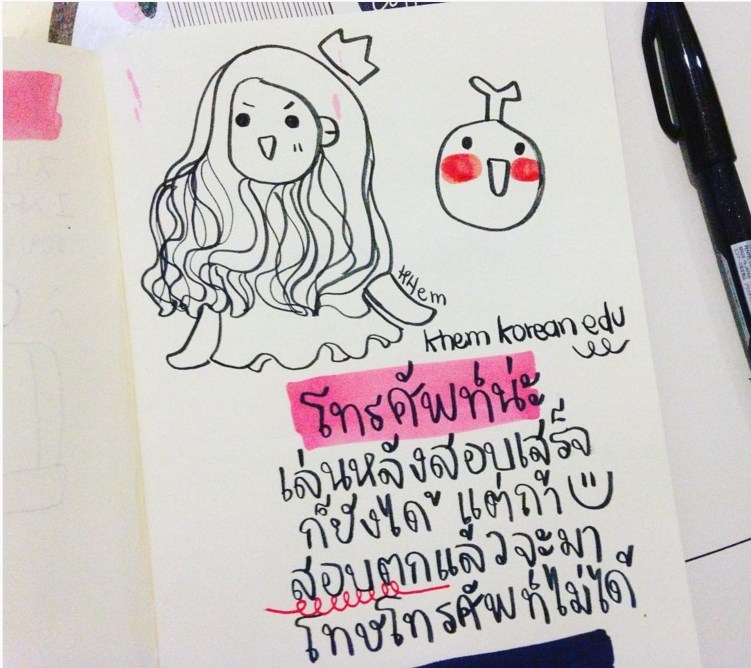 Khem
khem korean edu
โทรศัพท์น่ะ
เล่นหลังสอบเสร็จ
ก็ยังได้ แต่ถ้า
สอบตกแล้วจะมา
โทษโทรศัพท์ไม่ได้